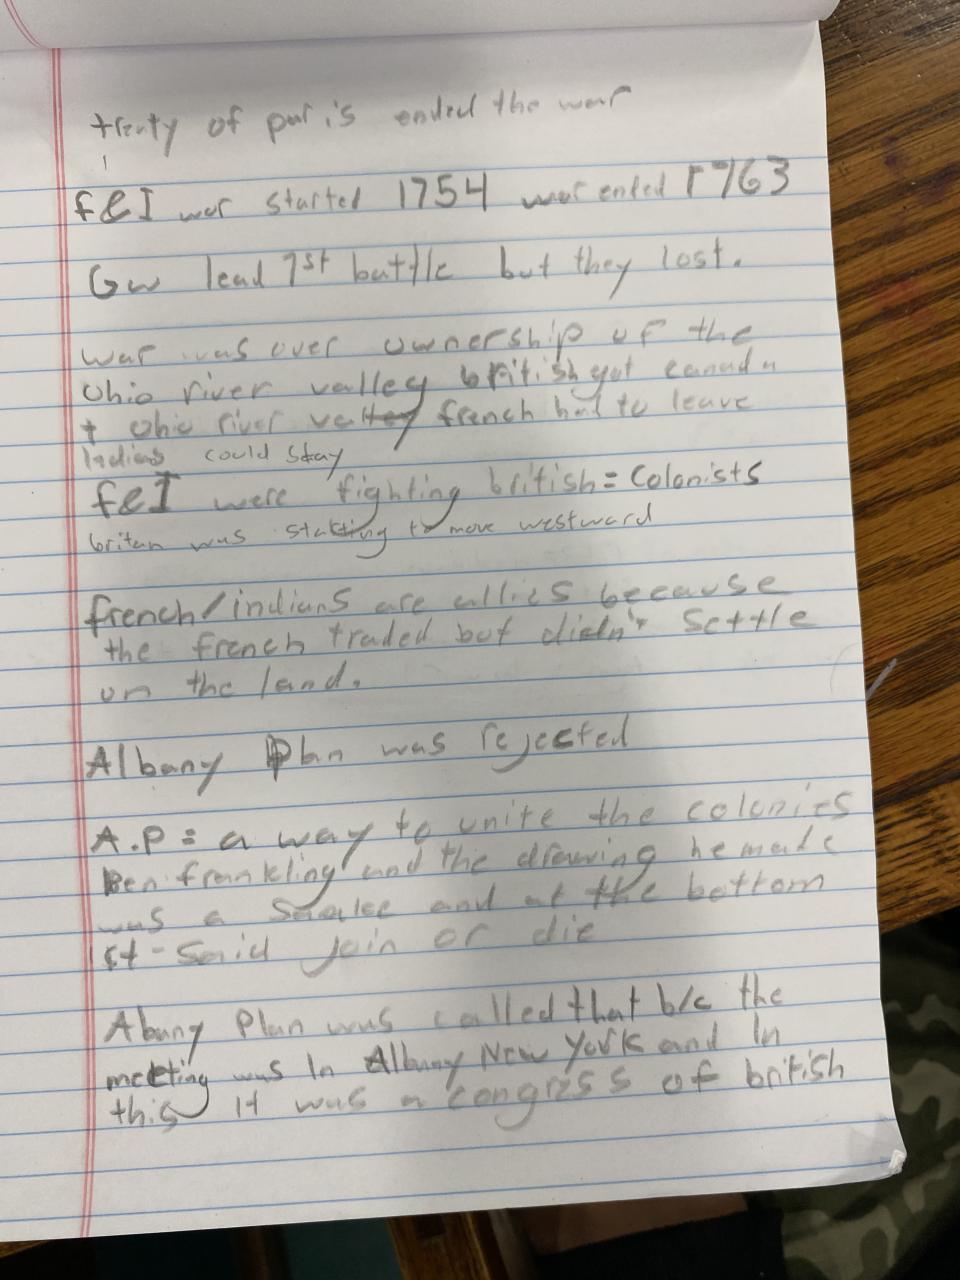 trenty of paris ended the war
f&I war started 1754 war ended 1763
Gw lead 1st battle but they lost.
war was over ownership of the
Ohio river valley british got canada
+ ohio river valley french had to leave
Indians could stay
f&I were fighting british = Colonists
britan was starting to move westward
french/indians are allies because
the french traded but didn't settle
on the land.
Albany Plan was rejected
A.P = a way to unite the colonies
Ben frankling and the drawing he made
was a and at the bottom
it - Said Join or die
Abany Plan was called that b/c the
meeting was In Albany New York and In
this It was a congress of british